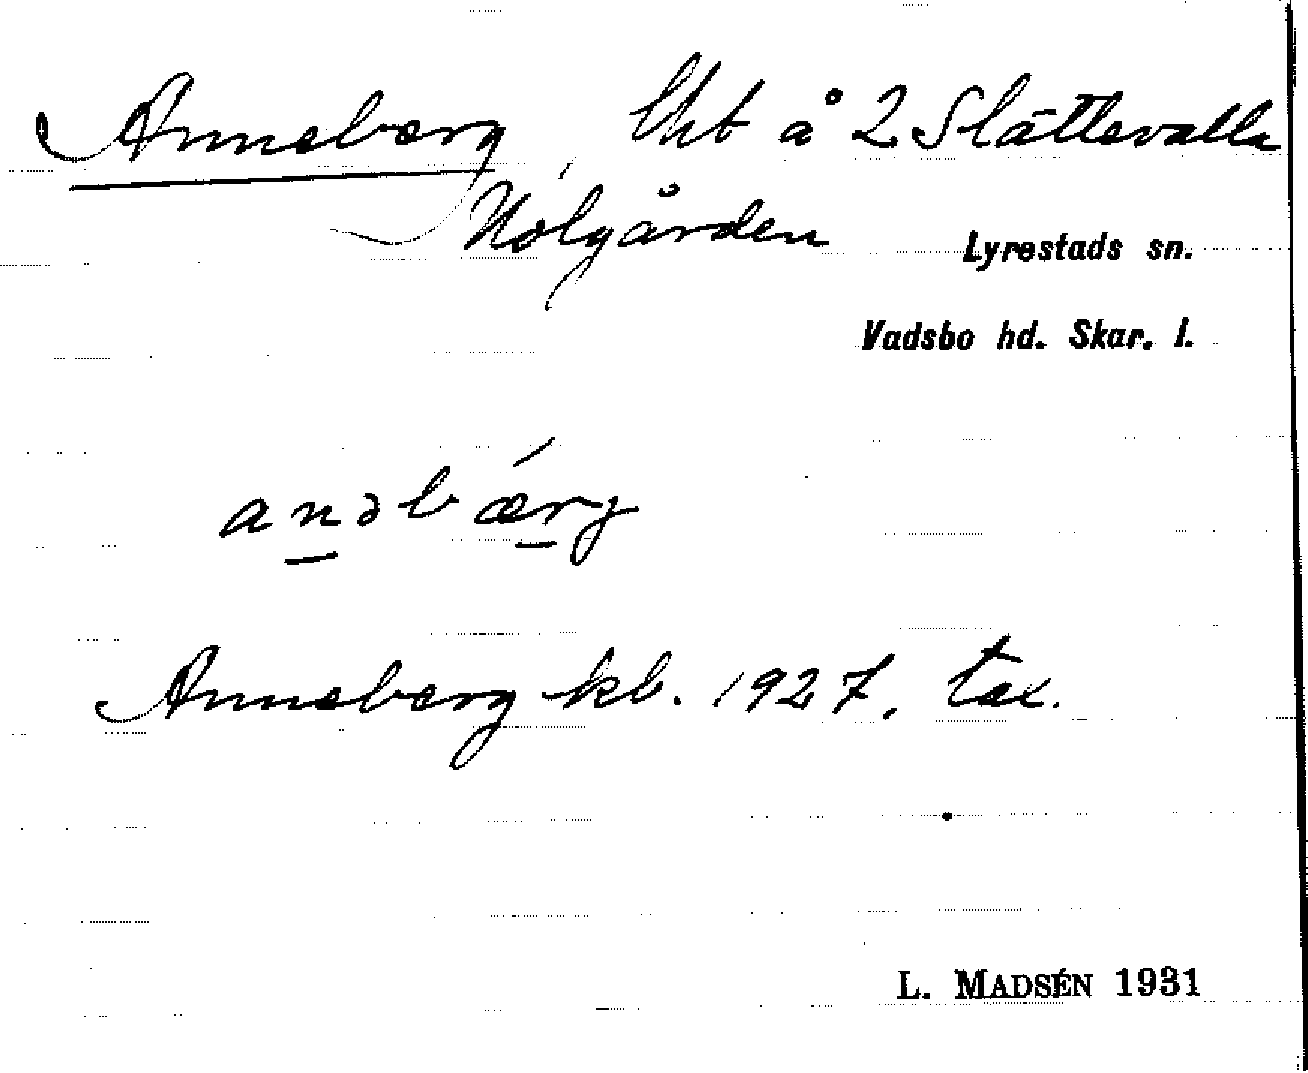 Anneberg, lht å 2 Slättevalla
Nolgården
Lyrestads sn.
Vadsbo hd. Skar. l.
anəbǽrg
Anneberg kb. 1927, tax.
L. MADSÉN 1931